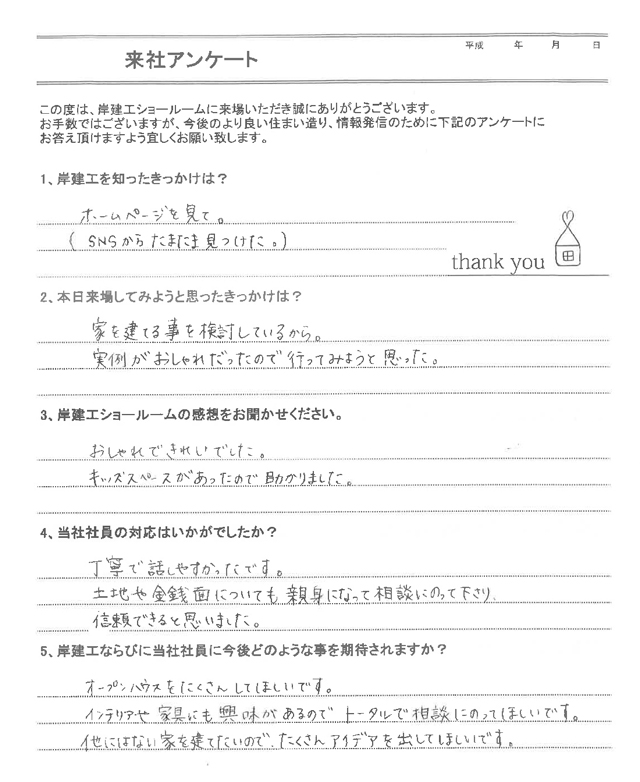 平成　　年　　月　　日
来社アンケート
この度は、岸建工ショールームに来場いただき誠にありがとうございます。
お手数ではございますが、今後のより良い住まい造り、情報発信のために下記のアンケートに
お答え頂けますよう宜しくお願い致します。
1、岸建工を知ったきっかけは？
ホームページを見て。
(SNSからたまたま見つけた。)
thank you
2、本日来場してみようと思ったきっかけは？
家を建てる事を検討しているから。
実例がおしゃれだったので行ってみようと思った。
3、岸建工ショールームの感想をお聞かせください。
おしゃれできれいでした。
キッズスペースがあったので助かりました。
4、当社社員の対応はいかがでしたか？
丁寧で話しやすかったです。
土地や金銭面についても親身になって相談にのって下さり、
信頼できると思いました。
5、岸建工ならびに当社社員に今後どのような事を期待されますか？
オープンハウスをたくさんしてほしいです。
インテリアや家具にも興味があるのでトータルで相談にのってほしいです。
他にはない家を建てたいので、たくさんアイデアを出してほしいです。